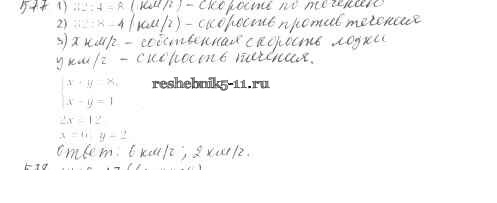 577 1) 32:4=8 (км/г) - скорость по течению
2) 32:8=4 (км/г) - скорость против течения
3) x км/г - собственная скорость лодки
y км/г - скорость течения.
x + y = 8,
reshebnik5-11.ru
x - y = 4
2x = 12
x = 6, y = 2
Ответ: 6 км/г; 2 км/г.
578